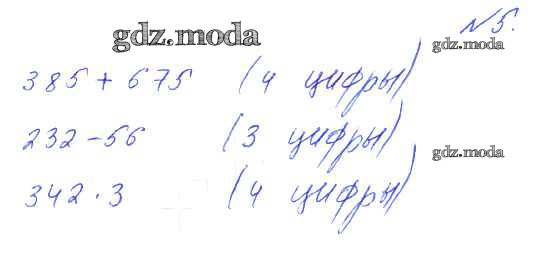 №5.
gdz.moda
gdz.moda
385 + 675 (4 цифры)
232 - 56 (3 цифры)
gdz.moda
342 · 3 (4 цифры)